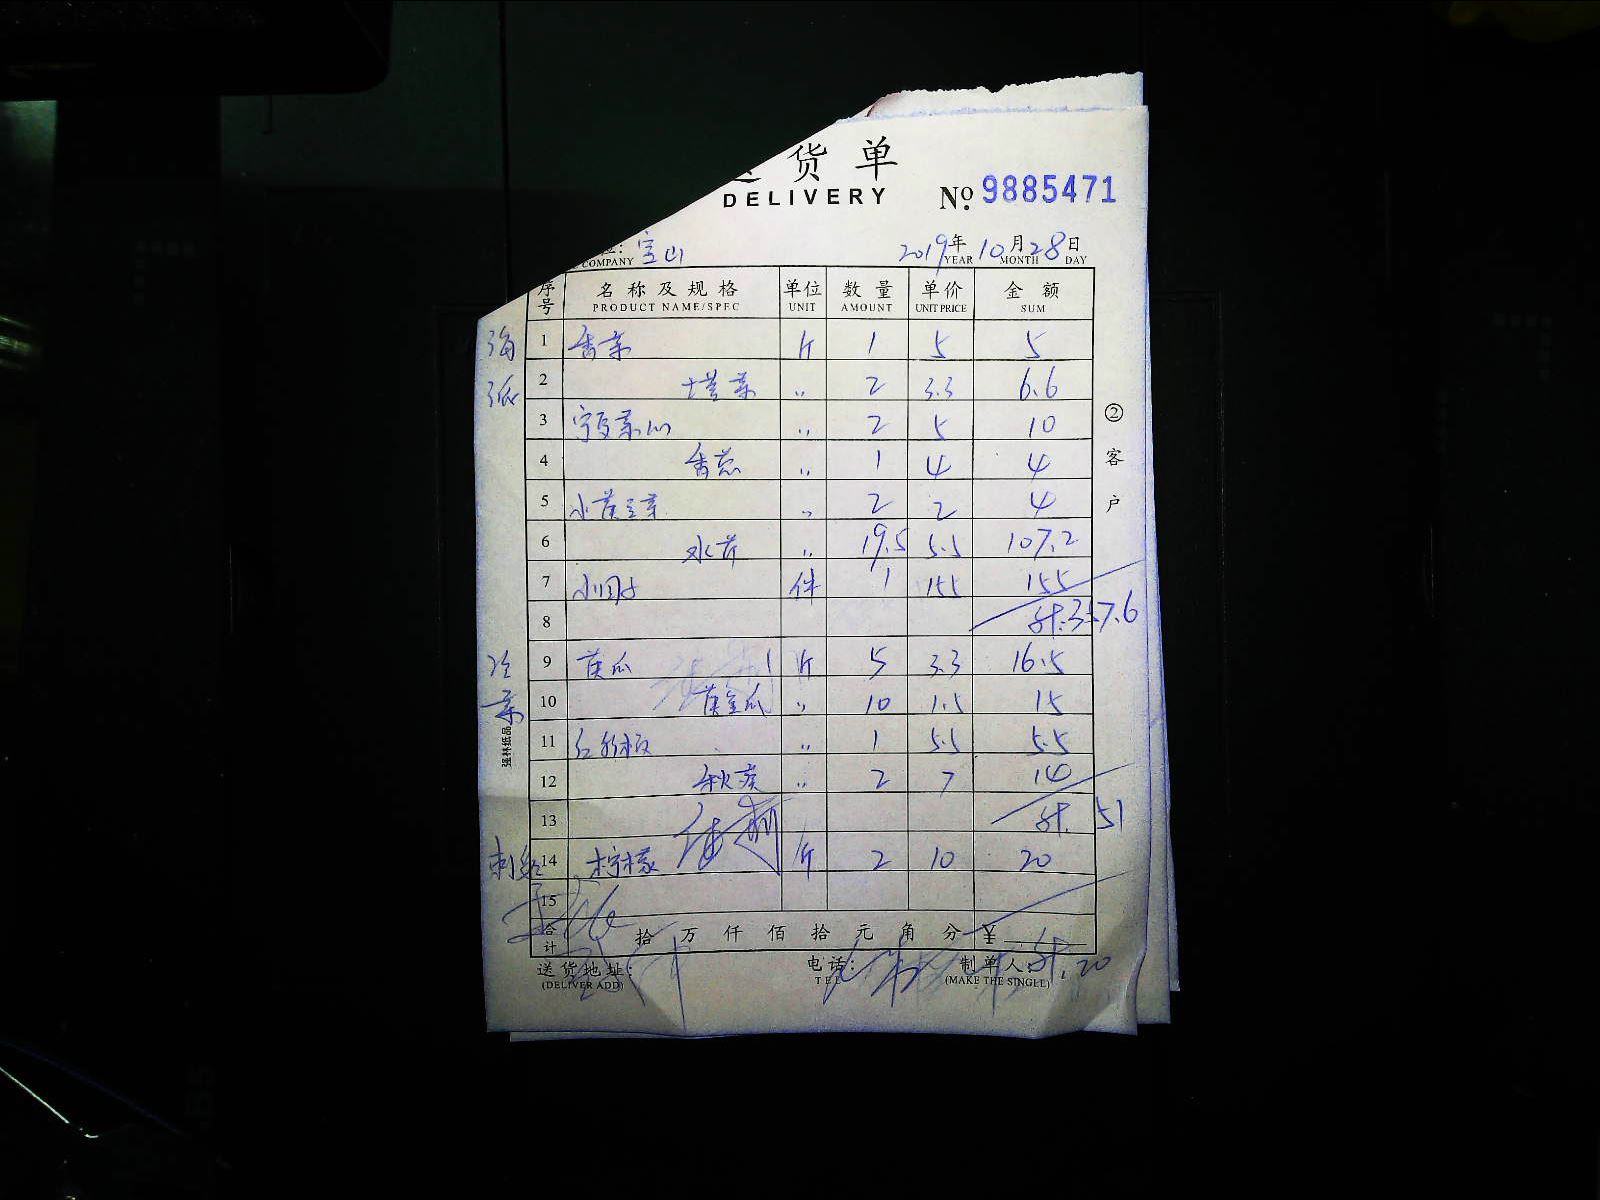 货单
DELIVERY
№ 9885471
COMPANY 宝山 2019年10月28日
YEAR MONTH DAY
序号 名称及规格 单位 数量 单价 金额
PRODUCT NAME/SPEC UNIT AMOUNT UNIT PRICE SUM
海 1 香菜 斤 1 5 5
派 2 塔菜 〃 2 3.3 6.6
3 宁夏菜心 〃 2 5 10
4 香葱 〃 1 4 4
5 小黄豆芽 〃 2 2 4
6 水芹 〃 19.5 5.5 107.2
7 件 1 155 155
8
冷 9 黄瓜 斤 5 3.3 16.5
菜 10 黄金瓜 〃 10 1.5 15
11 红彩椒 〃 1 5.5 5.5
12 秋葵 〃 2 7 14
13 计. 51
14 柠檬 斤 2 10 20
15
合计 拾 万 仟 佰 拾 元 角 分 ¥
计. 20
送货地址: 电话: 制单人:
(DELIVER ADD) TEL (MAKE THE SINGLE)
②客户
强林纸品